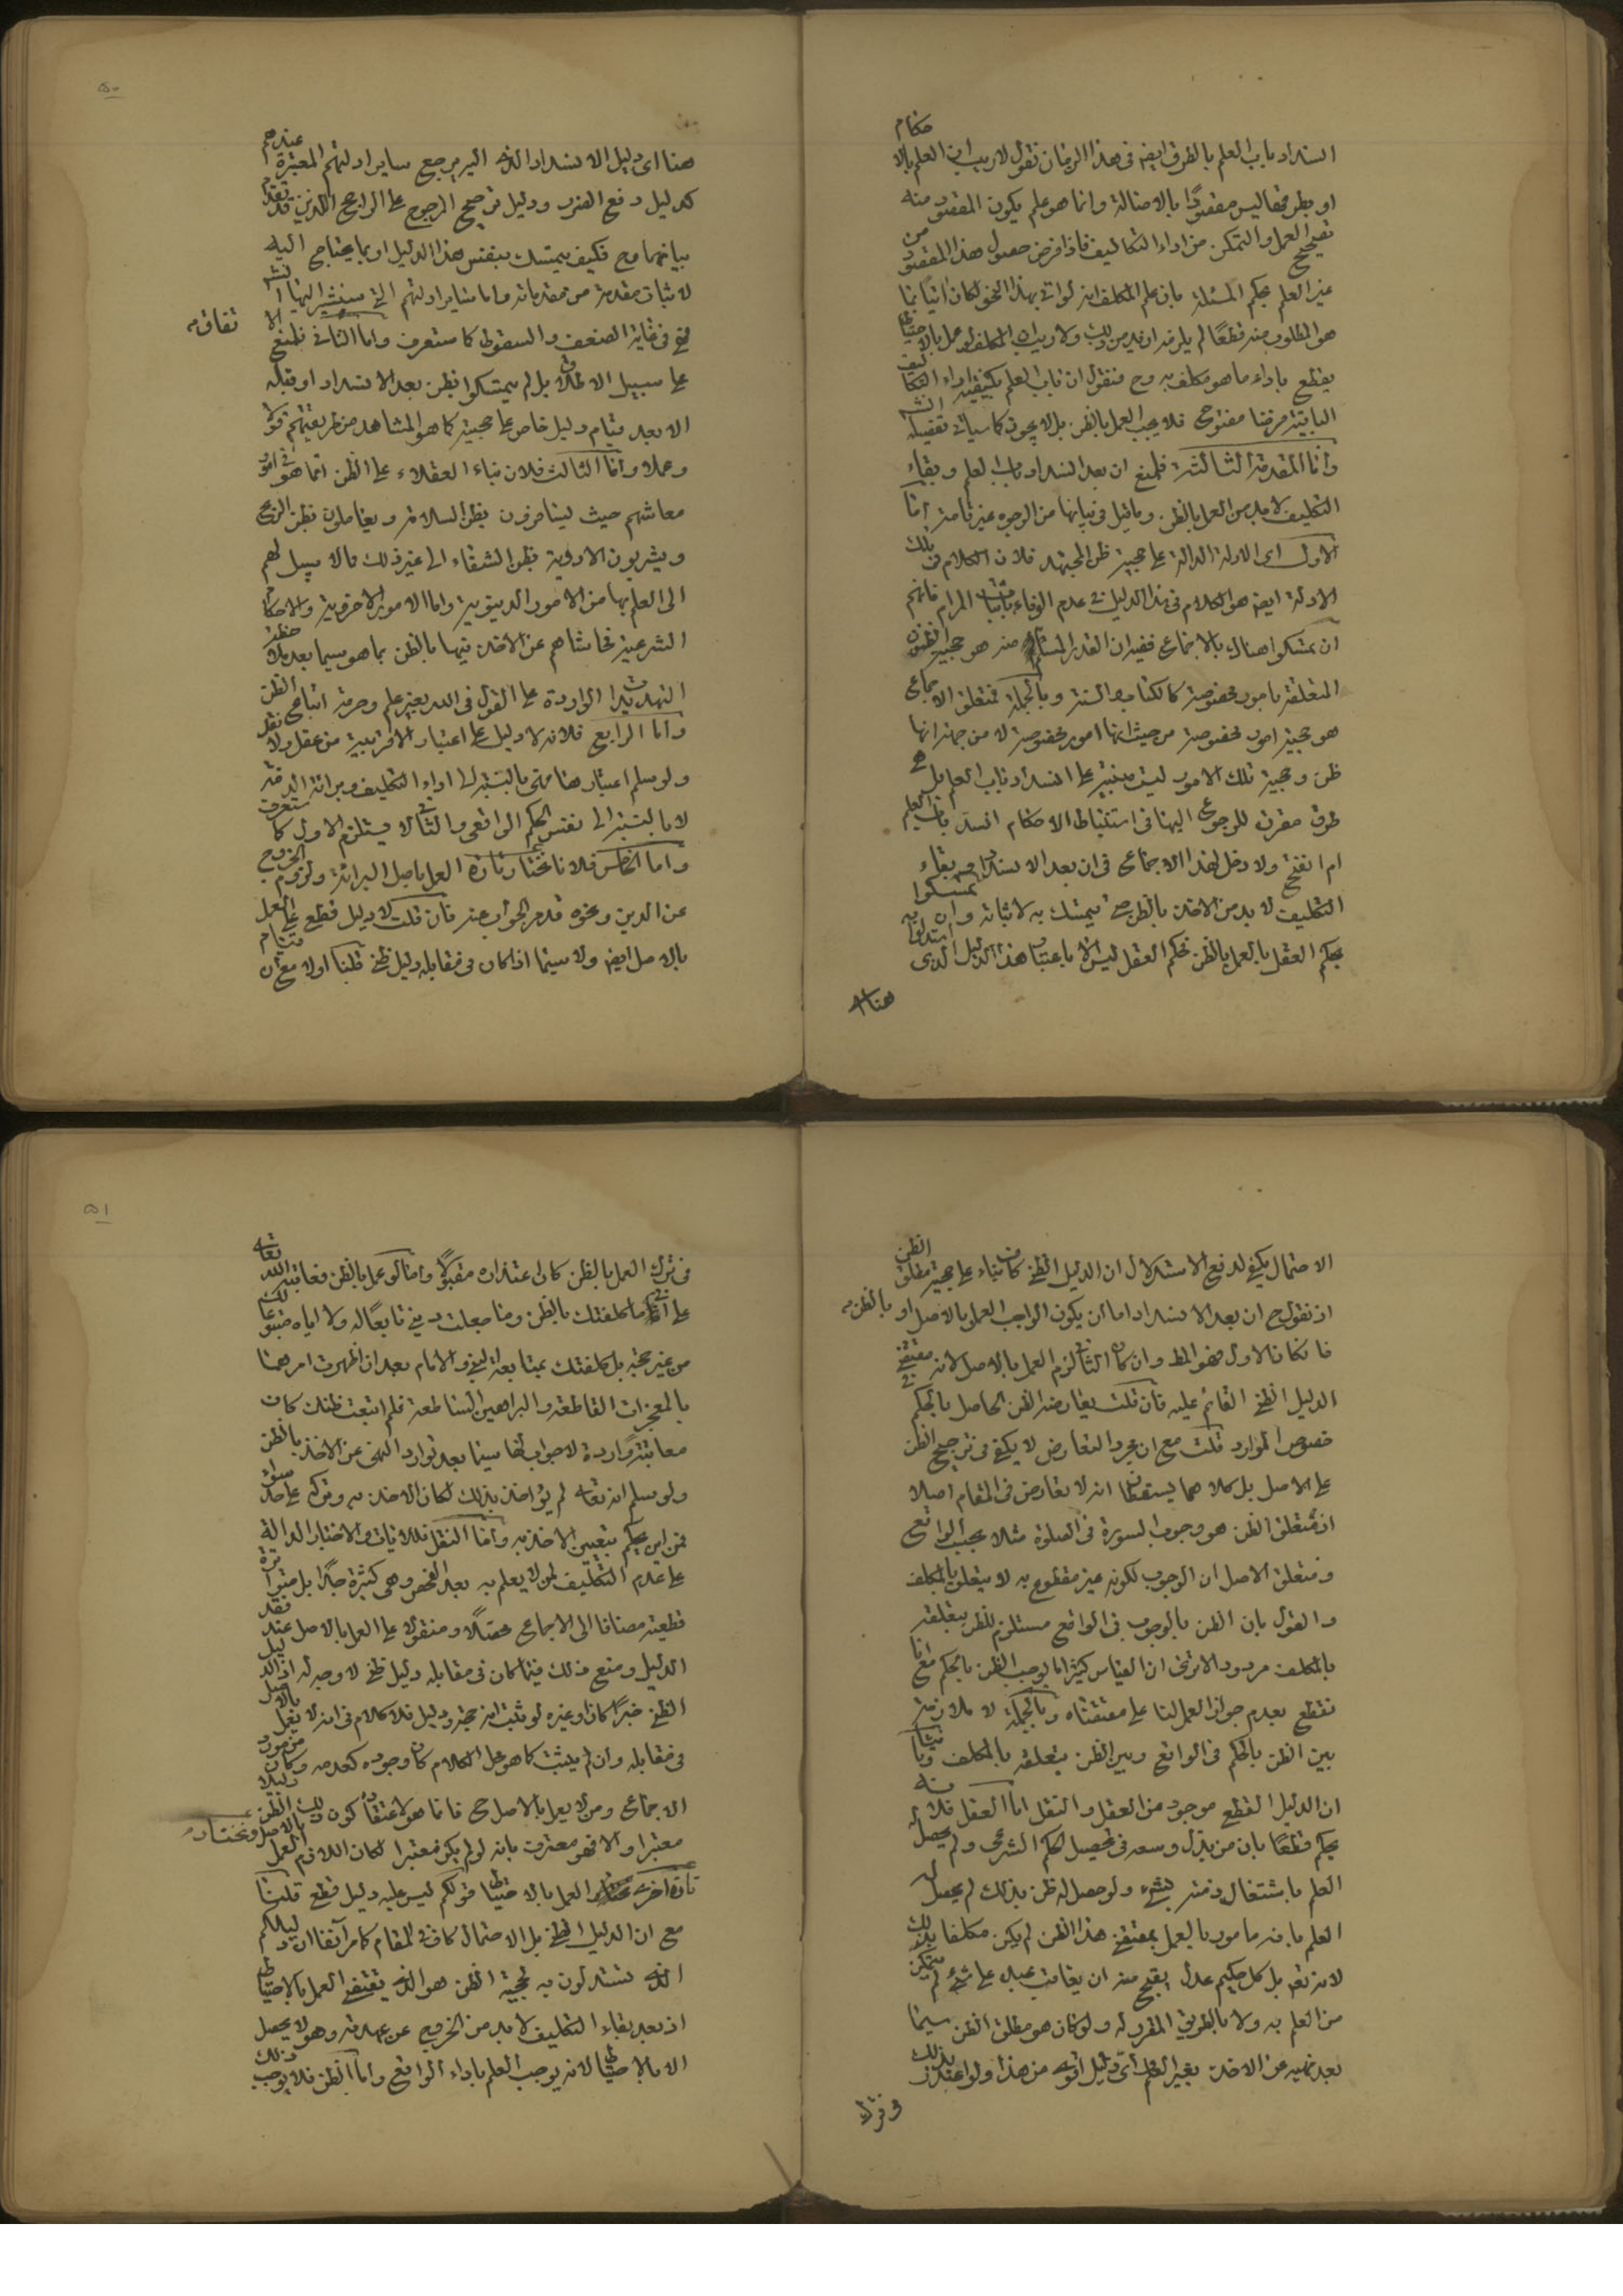 انسداد باب العلم بالطرق ايضا فى هذا الزمان نقول لا ريب ان العلم بالا
حكام
او بطرقها ليس مقصودًا بالاصالة وانما هو علم يكون المقصود منه
تصحيح العمل والتمكن من اداء التكاليف فاذا فرض حصول هذا المقصود من
غير العلم بحكم المسئلة بان علم المكلف انه لو اتى بهذا النحو لكان اتيانا بما
هو المطلوب منه قطعًا لم يلزمه ازيد من ذلك ولا ريب ان المكلف لو عمل بالاحتياط
يقطع باداء ما هو مكلف به وح فنقول ان باب العلم بكيفية اداء التكاليف
الثابتة فرضنا مفتوح فلا يجب العمل بالظن بل لا يجوز كما سياتى تفصيله انشه
واما المقدمة الثالثة فلمنع ان بعد انسداد باب العلم وبقاء
التكليف لا بد من العمل بالظن وما قيل فى بيانها من الوجوه غير تامة اما
الاول اى الادلة الدالة على حجية ظن المجتهد فلان الكلام فى تلك
الادلة ايضا هو الكلام فى هذا الدليل فى عدم الوفاء باثبات المرام فانهم
ان تمسكوا هناك بالاجماع ففيه ان القدر المسلم منه هو حجية الظنون
المتعلقة بامور مخصوصة كالكتاب والسنة وبالجملة فمتعلق الاجماع
هو حجية امور مخصوصة من حيث انها امور مخصوصة لا من جهة انها
ظن وحجية تلك الامور ليست مبنية على انسداد باب العلم بل هى
طرق مقررة للرجوع اليها فى استنباط الاحكام انسد باب العلم
ام انفتح ولا دخل لهذا الاجماع فى ان بعد الانسداد وبقاء
التكليف لا بد من الاخذ بالظن حتى يتمسك به لاثباته وان تمسكوا
بحكم العقل بالعمل بالظن فحكم العقل ليس الا باعتبار هذا الدليل الذى استدلوا به
هنا
۵۰
هنا اى دليل الانسداد الذى اليه مرجع ساير ادلتهم المعتبرة عندهم
كدليل دفع الضرر ودليل ترجيح المرجوح على الراجح اللذين قد تقدم
بيانهما وح فكيف يتمسك بنفس هذا الدليل او بما يحتاج اليه
لاثبات مقدمة من مقدماته واما ساير ادلتهم التى سنشير اليها انشه
فهى فى غاية الضعف والسقوط كما ستعرف واما الثانى فلمنع الا
تفاق
على سبيل الاطلاق بل لم يتمسكوا بظن بعد الانسداد او قبله
الا بعد قيام دليل خاص على حجيته كما هو المشاهد من طريقتهم قولا
وعملا واما الثالث فلان بناء العقلاء على الظن انما هو فى امور
معاشهم حيث يسافرون بظن السلامة ويعاملون بظن الربح
ويشربون الادوية بظن الشفاء الى غير ذلك مما لا سبيل لهم
الى العلم بها من الامور الدنيوية واما الامور الاخروية والاحكام
الشرعية فحاشاهم عن الاخذ فيها بالظن بما هو سيما بعد ملاحظة
التهديدات الواردة على القول فى الدين بغير علم وحرمة اتباع الظن
واما الرابع فلانه لا دليل على اعتبار الاقربية من عقل ولا نقل
ولو سلم اعتبارها فهى بالنسبة الى اداء التكليف وبرائة الذمة
لا بالنسبة الى نفس الحكم الواقعى والثانى لا يستلزم الاول كما ستعرف
واما الخامس فلانا نختار تارة العمل باصل البرائة ولزوم الخروج
عن الدين ونحوه قد مر الجواب عنه فان قلت لا دليل قطعى على العمل
بالاصل ايضا ولا سيما اذا كان فى مقابله دليل ظنى قلنا اولا مع ان قيام
الاحتمال يكفى لدفع الاستدلال ان الدليل الظنى كاف بناء على حجية مطلق الظن
اذ نقول ح ان بعد الانسداد اما ان يكون الواجب العمل بالاصل او بالظن
فان كان الاول فهو المط وان كان الثانى لزم العمل بالاصل لانه مقتضى
الدليل الظنى القائم عليه فان قلت يعارضه الظن الحاصل بالحكم فى
خصوص الموارد قلت مع ان مجرد التعارض لا يكفى فى ترجيح الظن
على الاصل بل كلاهما يسقطان انه لا تعارض فى المقام اصلا
اذ متعلق الظن هو وجوب السورة فى الصلوة مثلا بحسب الواقع
ومتعلق الاصل ان الوجوب لكونه غير مقطوع به لا يتعلق بالمكلف
والقول بان الظن بالوجوب فى الواقع مستلزم للظن بتعلقه
بالمكلف مردود الا ترى ان القياس كثيرا ما يوجب الظن بالحكم مع انا
نقطع بعدم جواز العمل لنا على مقتضاه وبالجملة لا ملازمة
بين الظن بالحكم فى الواقع وبين الظن بتعلقه بالمكلف وثانيا
ان الدليل القطعى موجود من العقل والنقل اما العقل فلانه
يحكم قطعًا بان من بذل وسعه فى تحصيل الحكم الشرعى ولم يحصل له
العلم باشتغال ذمته بشىء ولو حصل له ظن بذلك لم يحصل له
العلم بانه مامور بالعمل بمقتضى هذا الظن لم يكن مكلفا بذلك
لانه تع بل كل حكيم عدل يقبح منه ان يعاقب عبده على شىء لم يتمكن
من العلم به ولا بالطريق المقرر له ولو كان هو مطلق الظن سيما
بعد نهيه عن الاخذ بغير العلم اى دليل اقوى من هذا ولو اعتذر بذلك
فى ترك
۵۱
فى ترك العمل بالظن كان اعتذاره مقبولًا واما لو عمل بالظن فعاتبه الله تعالى
على انى ما كلفتك بالظن وما جعلت دينى تابعًا له ولا اياه متبوعا لك
من غير حجة بل كلفتك بمتابعة النبى والامام بعد ان اظهرت امرهما
بالمعجزات القاطعة والبراهين الساطعة فلم اتبعت ظنك كان
معاتبته واردة لا جواب لها سيما بعد توارد النهى عن الاخذ بالظن
ولو سلم انه تعالى لم يؤاخذ بذلك لكان الاخذ به وتركه على حد سواء
فمن اين يحكم بتعيين الاخذ به واما النقل فللايات والاخبار الدالة
على عدم التكليف لمن لا يعلم به بعد الفحص وهى كثيرة جدًا بل متواترة
قطعية مضافا الى الاجماع محصلًا ومنقولا على العمل بالاصل عند فقد
الدليل ومنع ذلك فيما كان فى مقابله دليل ظنى لا وجه له اذ الدليل
الظنى خبرًا كان او غيره لو ثبت انه حجة ودليل فلا كلام فى انه لا يعمل بالاصل
فى مقابله وان لم يثبت كما هو محل الكلام كان وجوده كعدمه وكان من مورد
الاجماع ومن لا يعمل بالاصل ح فانما هو لاعتقاده كون ذلك الظن دليلا
معتبرا والا فهو معترف بانه لو لم يكن معتبرا لكان اللازم العمل بالاصل ونختار
تارة اخرى العمل بالاحتياط قولكم ليس عليه دليل قطعى قلنا
مع ان الدليل الظنى بل الاحتمال كاف فى المقام كما مر آنفا ان دليلكم
الذى تستدلون به لحجية الظن هو الذى يقتضى العمل بالاحتياط
اذ بعد بقاء التكليف لا بد من الخروج عن عهدته وهو لا يحصل
الا بالاحتياط لانه يوجب العلم باداء الواقع واما الظن فلا يوجب ذلك